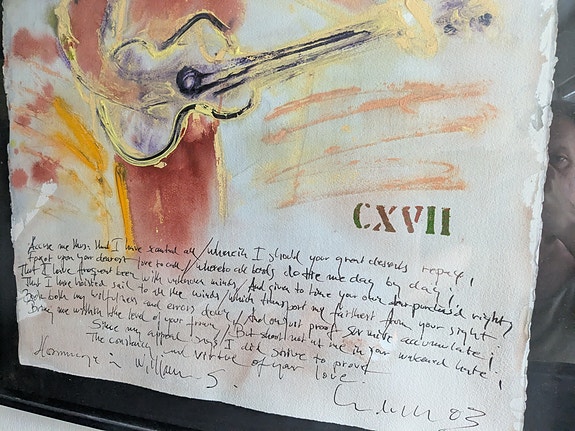 CXVII
Accuse me thus: that I have scanted all / Wherein I should your great deserts repay,
Forgot upon your dearest love to call / Whereto all bonds do tie me day by day;
That I have frequent been with unknown minds / And given to time your own dear purchased right;
That I have hoisted sail to all the winds / Which transport me farthest from your sight.
Book both my wilfulness and errors down / And on just proof surmise accumulate!
Bring me within the level of your frown / But shoot not at me in your wakened hate!
Since my appeal says I did strive to prove
The constancy and virtue of your love.
Hommage à William S.
03